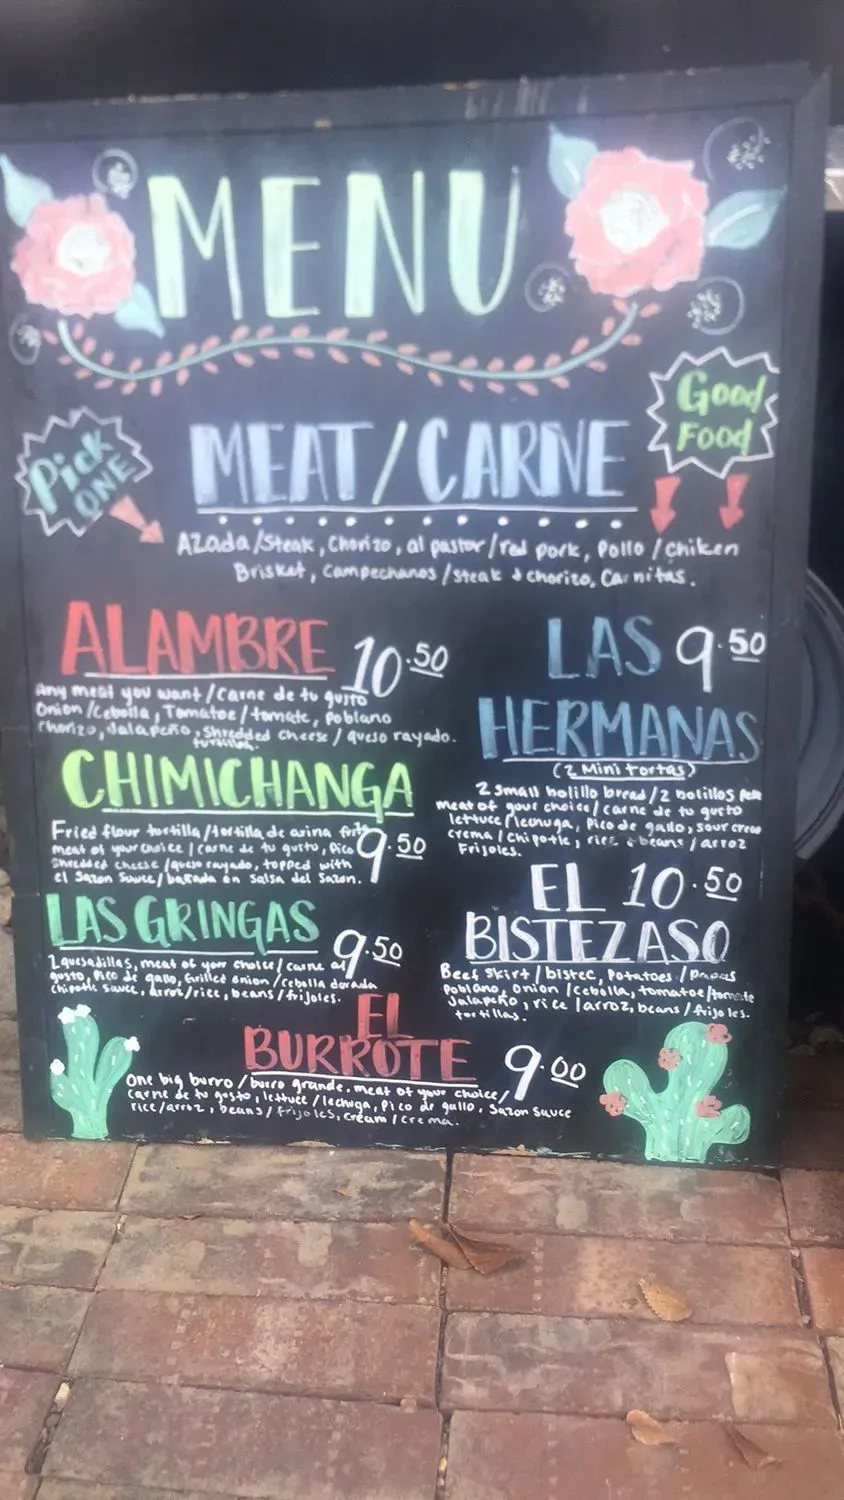 MENU
Good
Food
Pick
ONE
MEAT/CARNE
Azada/Steak, Chorizo, al pastor/red pork, Pollo/chiken
Brisket, Campechanos/steak & chorizo, Carnitas.
ALAMBRE 10.50
Any meat you want/Carne de tu gusto
Onion/Cebolla, Tomatoe/tomate, poblano
Chorizo, Jalapeño, shredded cheese/queso rayado.
tortillas.
CHIMICHANGA
9.50
Fried flour tortilla/tortilla de arina frita
meat of your choice/carne de tu gusto, Pico
Shredded cheese/queso rayado, topped with
el Sazon Sauce/bañada en salsa del Sazon.
LAS GRINGAS 9.50
2 quesadillas, meat of your choice/carne al
gusto, Pico de gallo, Grilled onion/cebolla dorada
chipotle sauce, arroz/rice, beans/frijoles.
LAS 9.50
HERMANAS
(2 Mini tortas)
2 small bolillo bread/2 bolillos
meat of your choice/carne de tu gusto
lettuce/lechuga, Pico de gallo, sour cream
crema/chipotle, rice & beans/arroz
Frijoles.
EL 10.50
BISTEZASO
Beef Skirt/bistec, Potatoes/Papas
Poblano, onion/cebolla, tomatoe/tomate
Jalapeño, rice/arroz, beans/frijoles.
tortillas.
EL
BURROTE 9.00
One big burro/burro grande, meat of your choice/
carne de tu gusto, lettuce/lechuga, Pico de gallo, Sazon Sauce
rice/arroz, beans/frijoles, cream/crema.